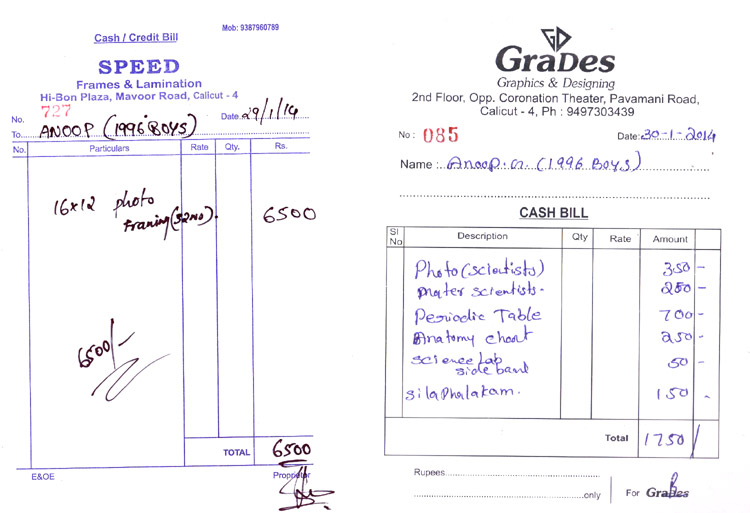 Mob: 9387960789
Cash / Credit Bill
SPEED
Frames & Lamination
Hi-Bon Plaza, Mavoor Road, Calicut - 4
No. 727
Date 29/1/14
To ANOOP (1996 BOYS)
No. Particulars Rate Qty. Rs.
16x12 photo
Framing (32NO). 6500
6500/-
TOTAL 6500
E&OE Proprietor
GraDes
Graphics & Designing
2nd Floor, Opp. Coronation Theater, Pavamani Road,
Calicut - 4, Ph : 9497303439
No : 085 Date: 30-1-2014
Name : Anoop (1996 BOYS)
CASH BILL
Sl No Description Qty Rate Amount
Photo (scientists) 350 -
mater scientists - 250 -
Periodic Table 700 -
Anatomy chart 250 -
science Lab
side band 50 -
silaphalakam. 150 -
Total 1750/
Rupees
only For GraDes